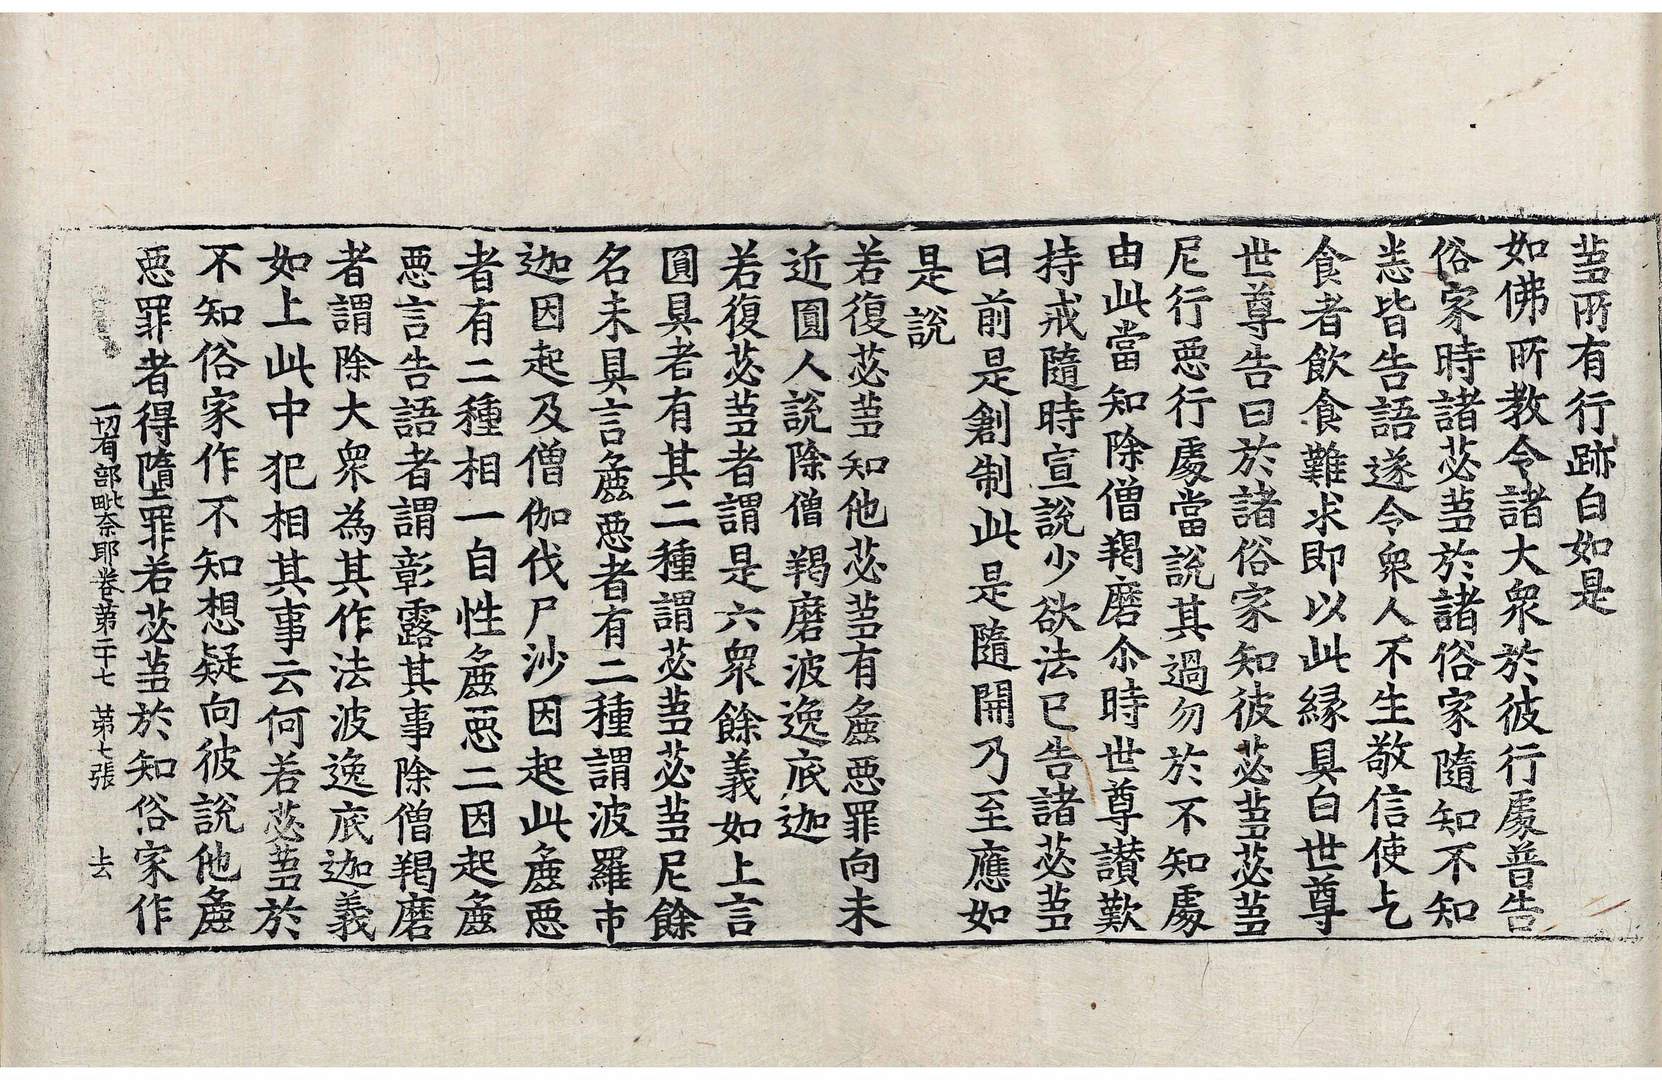 蒭所有行跡白如是
如佛所教令諸大衆於彼行處普告
俗家時諸苾蒭於諸俗家隨知不知
恙皆告語遂令衆人不生敬信使乞
食者飲食難求即以此縁具白世尊
世尊告曰於諸俗家知彼苾蒭苾蒭
尼行惡行處當說其過勿於不知處
由此當知除僧羯磨尒時世尊讃歎
持戒隨時宣說少欲法已告諸苾蒭
曰前是創制此是隨開乃至應如
是說
若復苾蒭知他苾蒭有麁惡罪向未
近圓人說除僧羯磨波逸底迦
若復苾蒭者謂是六衆餘義如上言
圓具者有其二種謂苾蒭苾蒭尼餘
名未具言麁惡者有二種謂波羅市
迦因起及僧伽伐尸沙因起此麁惡
者有二種相一自性麁惡二因起麁
惡言告語者謂彰露其事除僧羯磨
者謂除大衆為其作法波逸底迦義
如上此中犯相其事云何若苾蒭於
不知俗家作不知想疑向彼說他麁
惡罪者得墮罪若苾蒭於知俗家作
一切有部毗奈耶卷第二十七 第七張 去